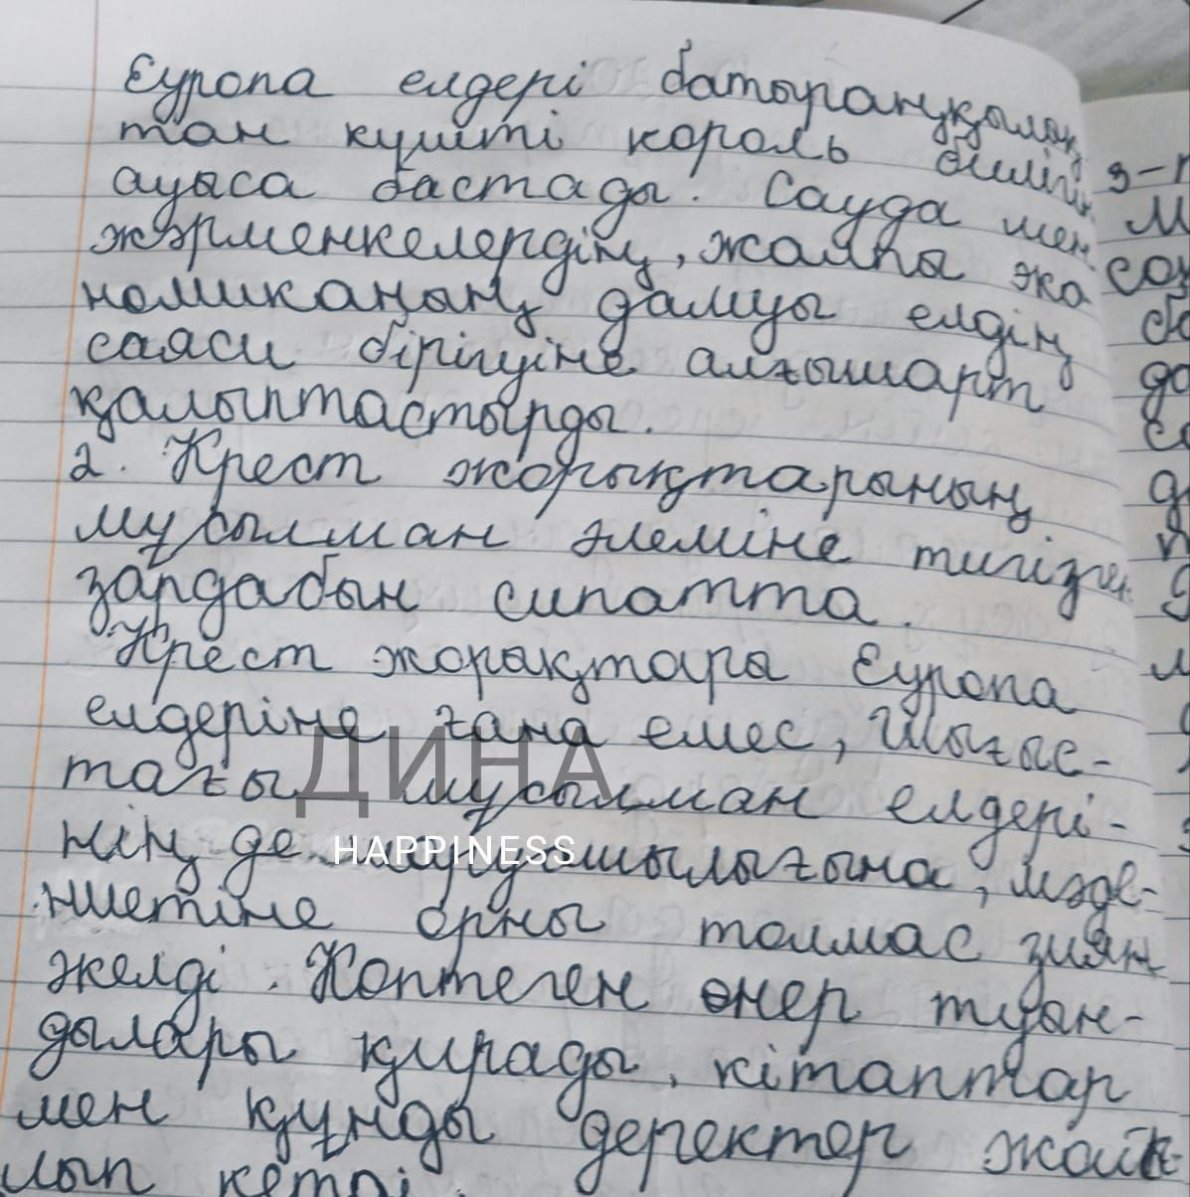 Еуропа елдері батыраңқылық
тан күшті король билігіне
ауыса бастады. Сауда мен
жәрменкелердің, жалпы эко
номиканың дамуы елдің
саяси бірігуіне алғышарт
қалыптастырды.
2. Крест жорықтарының
мұсылман әлеміне тигізген
зардабын сипатта.
Крест жорақтары Еуропа
елдеріне ғана емес, Шығыс-
тағы мұсылман елдері-
нің де шаруашылығына, мәде-
ниетіне орны толмас зиян
келді. Көптеген өнер туын-
дылары қирады, кітаптар
мен құнды деректер жойы-
лып кетті.
ДИНА
HAPPINESS
з-
м